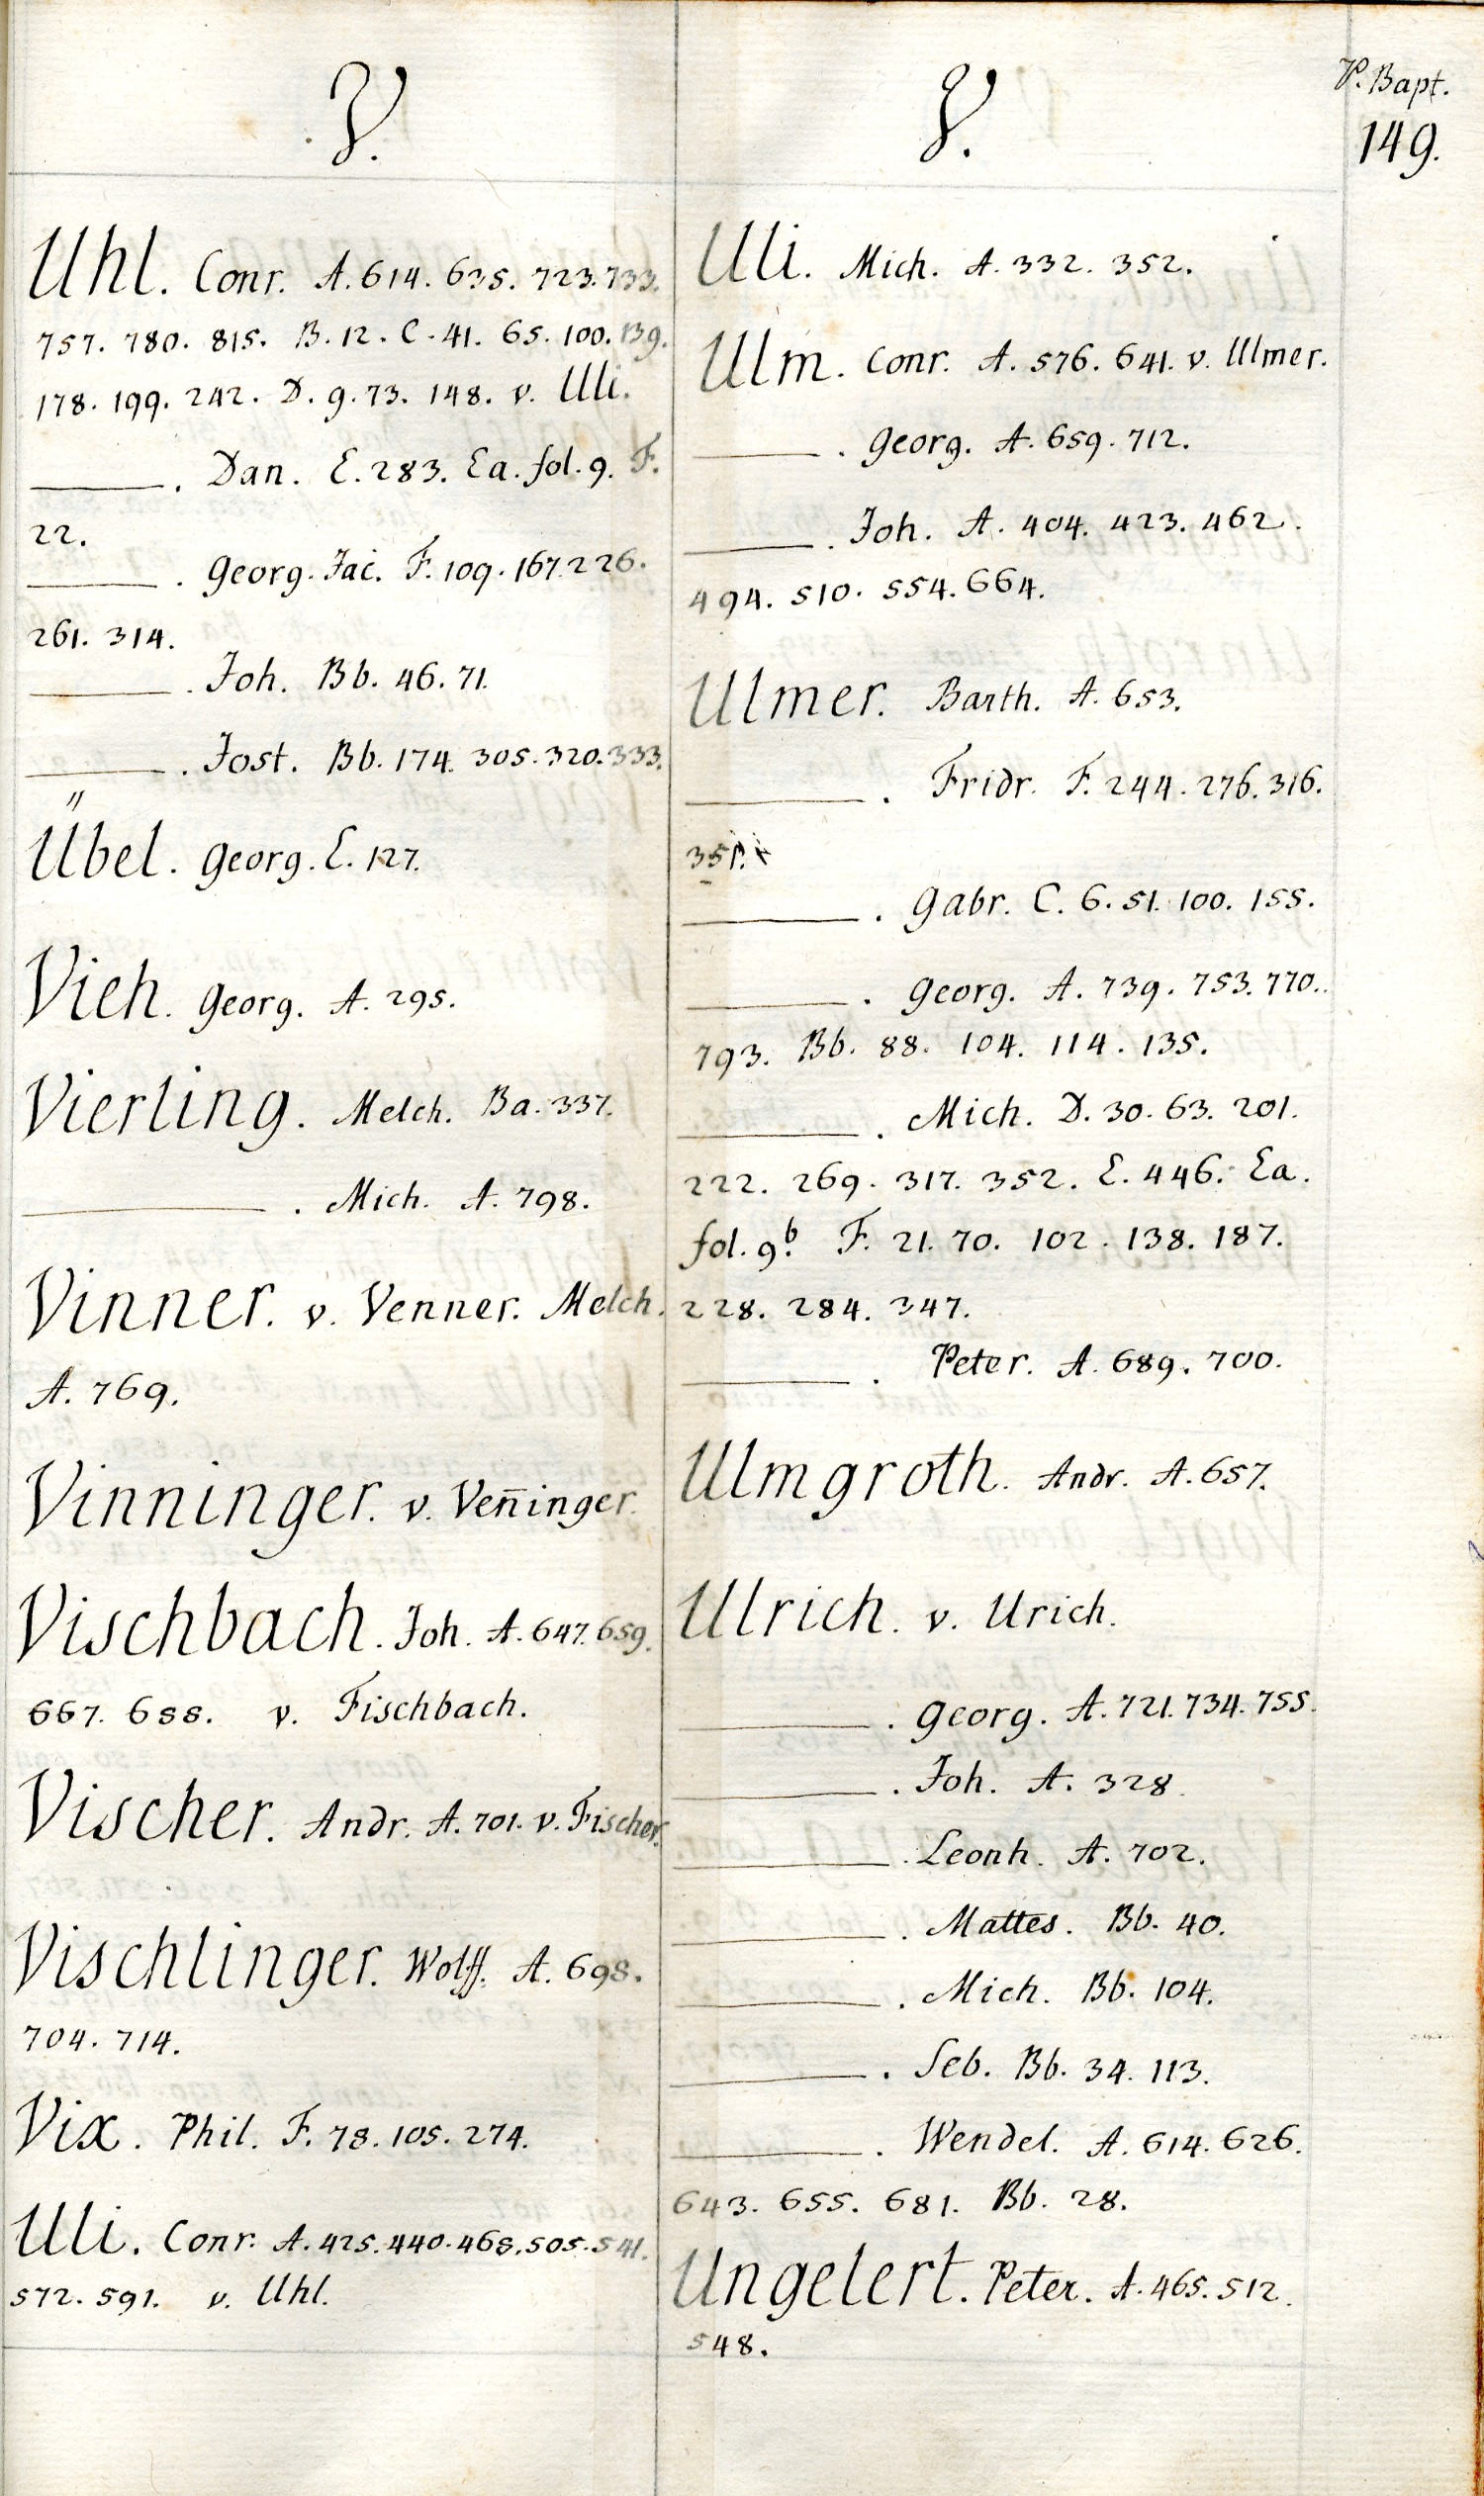 P. Bapt.
149.
V.
Uhl. Conr. A. 614. 635. 723. 733.
757. 780. 815. B. 12. C. 41. 65. 100. 139.
178. 199. 242. D. 9. 73. 148. v. Uli.
———. Dan. E. 283. Ea. fol. 9. F.
22.
———. Georg. Jac. F. 109. 167. 226.
261. 314.
———. Joh. Bb. 46. 71.
———. Jost. Bb. 174. 305. 320. 333.
Übel. Georg. E. 127.
Vieh. Georg. A. 295.
Vierling. Melch. Ba. 337.
———. Mich. A. 798.
Vinner. v. Venner. Melch.
A. 769.
Vinninger. v. Ven̄inger.
Vischbach. Joh. A. 647. 659.
667. 688. v. Fischbach.
Vischer. Andr. A. 701. v. Fischer.
Vischlinger. Wolff. A. 698.
704. 714.
Vix. Phil. F. 78. 105. 274.
Uli. Conr. A. 425. 440. 468. 505. 541.
572. 591. v. Uhl.
V.
Uli. Mich. A. 332. 352.
Ulm. Conr. A. 576. 641. v. Ulmer.
———. Georg. A. 659. 712.
———. Joh. A. 404. 423. 462.
494. 510. 554. 664.
Ulmer. Barth. A. 653.
———. Fridr. F. 244. 276. 316.
351.
———. Gabr. C. 6. 51. 100. 155.
———. Georg. A. 739. 753. 770.
793. Bb. 88. 104. 114. 135.
———. Mich. D. 30. 63. 201.
222. 269. 317. 352. E. 446. Ea.
fol. 9.b F. 21. 70. 102. 138. 187.
228. 284. 347.
———. Peter. A. 689. 700.
Ulmgroth. Andr. A. 657.
Ulrich. v. Urich.
———. Georg. A. 721. 734. 755.
———. Joh. A. 328.
———. Leonh. A. 702.
———. Mattes. Bb. 40.
———. Mich. Bb. 104.
———. Seb. Bb. 34. 113.
———. Wendel. A. 614. 626.
643. 655. 681. Bb. 28.
Ungelert. Peter. A. 465. 512.
548.